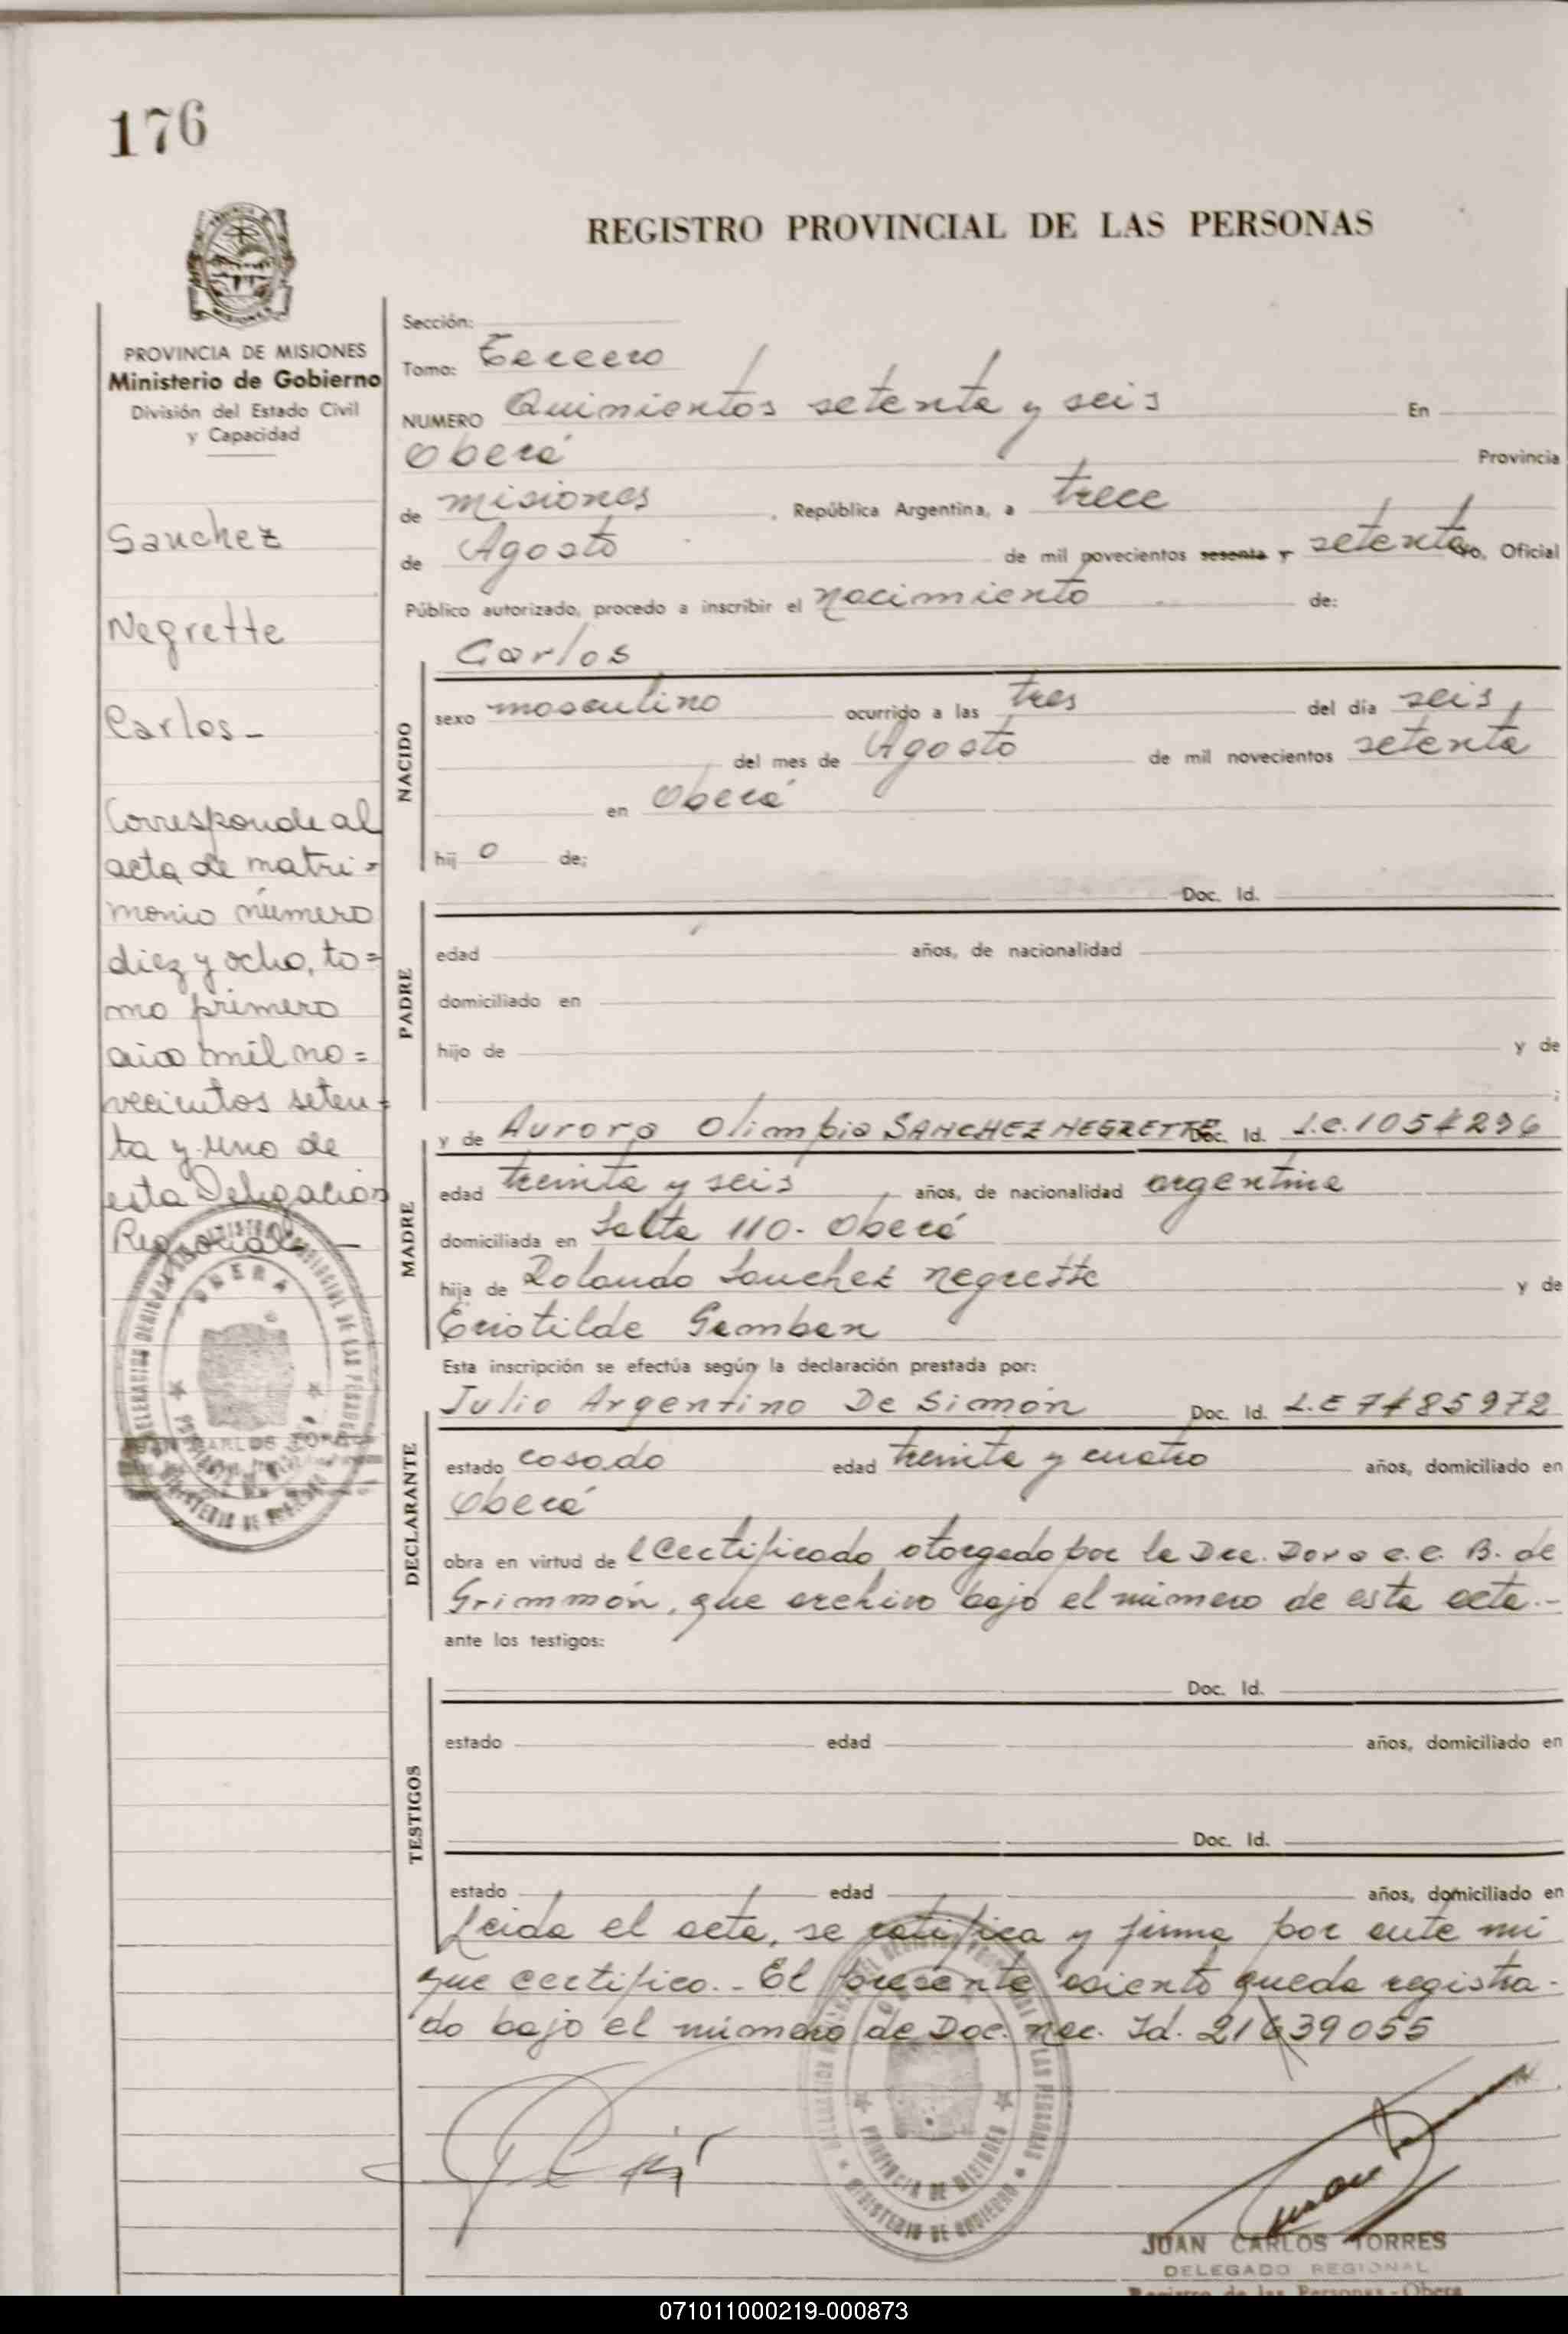 176
REGISTRO PROVINCIAL DE LAS PERSONAS
PROVINCIA DE MISIONES
Ministerio de Gobierno
División del Estado Civil
y Capacidad
Sanchez
Negrette
Carlos_
Corresponde al
acta de matri=
monio número
diez y ocho, to=
mo primero
año mil no=
vecientos seten=
ta y uno de
esta Delegación
Regional
OBERA
MINISTERIO DE GOBIERNO
Sección:
Tomo: Tercero
NUMERO Quinientos setenta y seis En
Oberá Provincia
de misiones , República Argentina, a trece
de Agosto de mil novecientos sesenta y setenta yo, Oficial
Público autorizado, procedo a inscribir el nacimiento de:
Carlos
NACIDO
sexo masculino ocurrido a las tres del día seis,
del mes de Agosto de mil novecientos setenta
en Oberá
hij o de:
PADRE
Doc. Id.
edad años, de nacionalidad
domiciliado en
hijo de y de
;
MADRE
y de Aurora Olimpia SANCHEZ NEGRETTE Doc. Id. L.C.
edad treinta y seis , años, de nacionalidad argentina
domiciliada en Salta 110- Oberá
hija de Rolando Sanchez negrette y de
Gamben
Esta inscripción se efectúa según la declaración prestada por:
DECLARANTE
Julio Argentino De Simón Doc. Id. L.E
estado casado edad treinta y cuatro años, domiciliado en
Oberá
obra en virtud de l Certificado otorgado por la Dra. Dora e.e. B. de
Grimmón, que archivo bajo el número de esta acta.-
ante los testigos:
TESTIGOS
Doc. Id.
estado edad años, domiciliado en
Doc. Id.
estado edad años, domiciliado en
Leida el acta, se ratifica y firma por ante mi
que certifico.- El presente asiento queda registra-
do bajo el número de Doc. nac. Id. 21639055
PROVINCIA DE MISIONES
MINISTERIO DE GOBIERNO
JUAN CARLOS TORRES
DELEGADO REGIONAL
Registro de las Personas - Obera
071011000219-000873